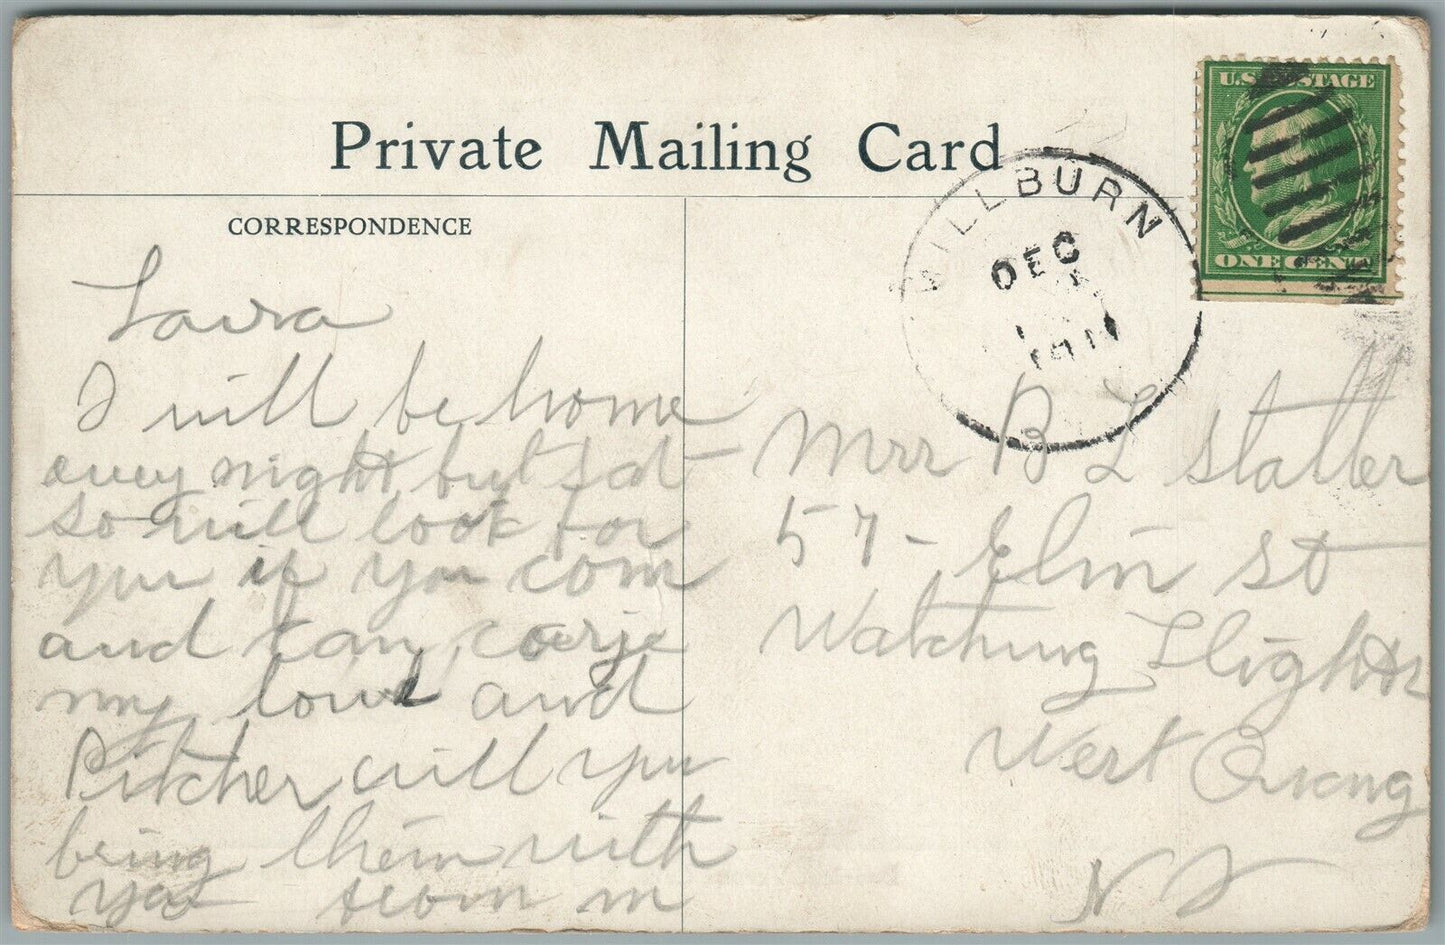 Private Mailing Card
CORRESPONDENCE
U.S. POSTAGE
ONE CENT
MILLBURN
DEC
1
1911
Laura
I will be home
every night but Sat
so will look for
you if you com
and can, carje
my bowl and
Pitcher will you
bring them with
you from m
Mrs B L Statler
57 - Elm St
Watchung Hights
West Orang
N J